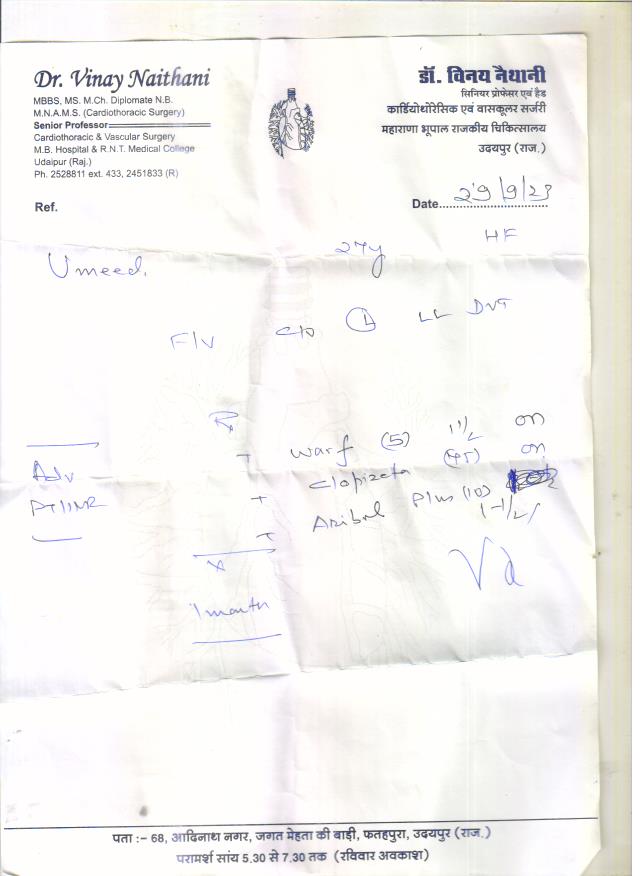 Dr. Vinay Naithani
MBBS, MS. M.Ch. Diplomate N.B.
M.N.A.M.S. (Cardiothoracic Surgery)
Senior Professor
Cardiothoracic & Vascular Surgery
M.B. Hospital & R.N.T. Medical College
Udaipur (Raj.)
Ph. 2528811 ext. 433, 2451833 (R)
डॉ. विनय नैथानी
सिनियर प्रोफेसर एवं हैड
कार्डियोथोरेसिक एवं वासकूलर सर्जरी
महाराणा भूपाल राजकीय चिकित्सालय
उदयपुर (राज.)
Ref.
Date 29/9/23
Umeed. 27y
F/V c/o L LL DVT
Rx
T warf (5) 1 1/2 on
T (75) on
T Plus (10)
Adv
PT/INR
x
1 month
पता :– 68, आदिनाथ नगर, जगत मेहता की बाड़ी, फतहपुरा, उदयपुर (राज.)
परामर्श सांय 5.30 से 7.30 तक (रविवार अवकाश)